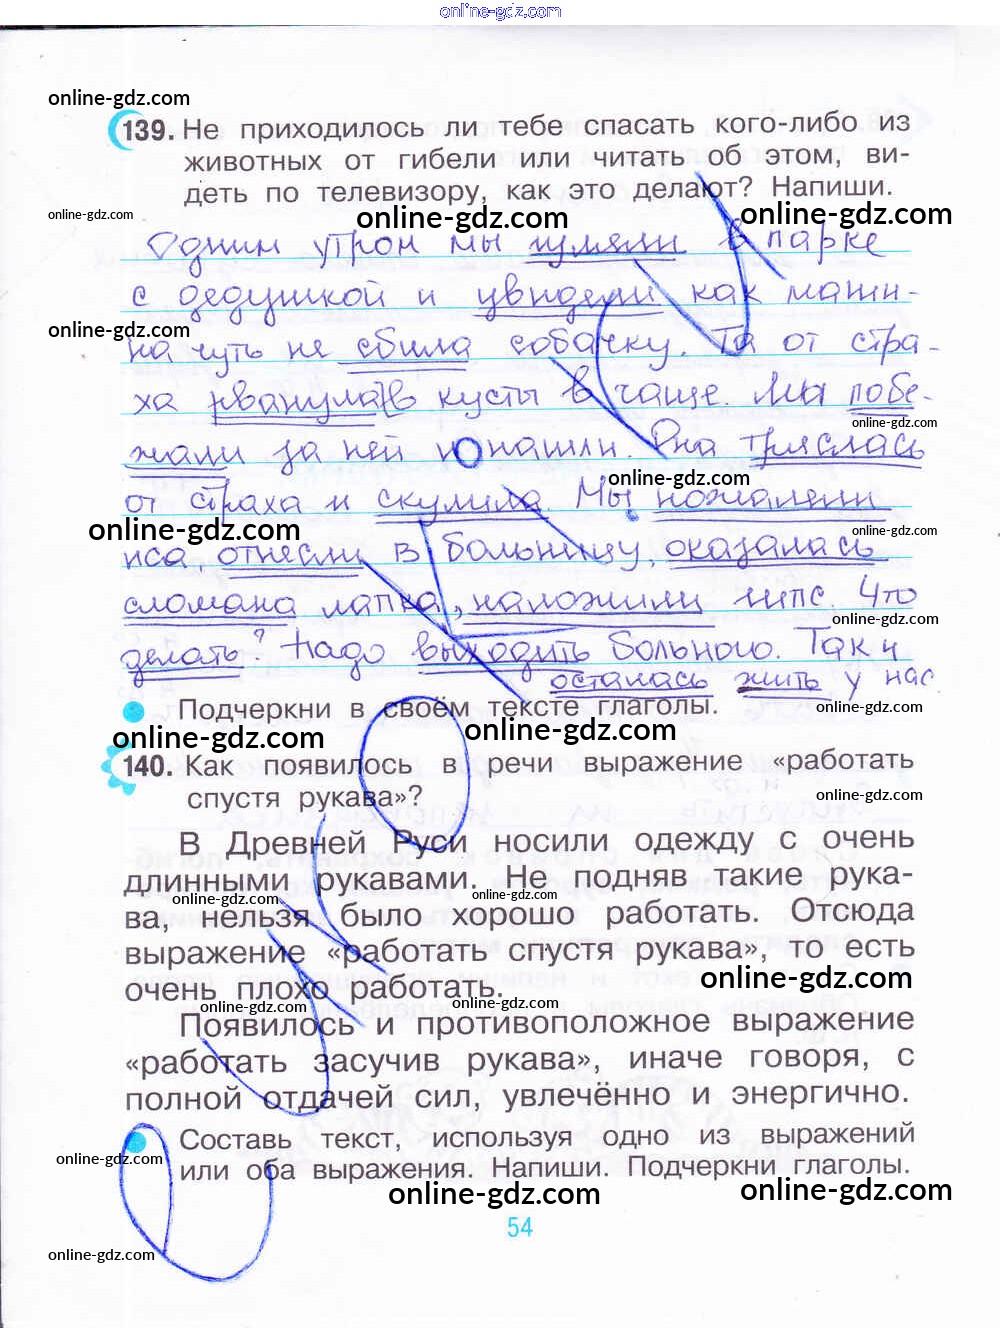 online-gdz.com
online-gdz.com
139. Не приходилось ли тебе спасать кого-либо из
животных от гибели или читать об этом, ви-
деть по телевизору, как это делают? Напиши.
online-gdz.com online-gdz.com online-gdz.com
Одним утром мы гуляли в парке
с дедушкой и увидели как маши-
online-gdz.com
на чуть не сбила собачку. Та от стра-
ха рванула в кусты в чаще. Мы побе-
online-gdz.com
жали за ней и нашли. Она тряслась
online-gdz.com
от страха и скулила. Мы пожалели
online-gdz.com online-gdz.com
пса, отнесли в больницу, оказалась
сломана лапка, наложили гипс. Что
online-gdz.com
делать? Надо выходить больного. Так и
осталась жить у нас
Подчеркни в своём тексте глаголы.
online-gdz.com
online-gdz.com online-gdz.com
140. Как появилось в речи выражение «работать
спустя рукава»?
online-gdz.com
В Древней Руси носили одежду с очень
длинными рукавами. Не подняв такие рука-
online-gdz.com online-gdz.com
ва, нельзя было хорошо работать. Отсюда
выражение «работать спустя рукава», то есть
online-gdz.com
очень плохо работать.
online-gdz.com online-gdz.com
Появилось и противоположное выражение
«работать засучив рукава», иначе говоря, с
полной отдачей сил, увлечённо и энергично.
Составь текст, используя одно из выражений
online-gdz.com
или оба выражения. Напиши. Подчеркни глаголы.
online-gdz.com online-gdz.com
54
online-gdz.com